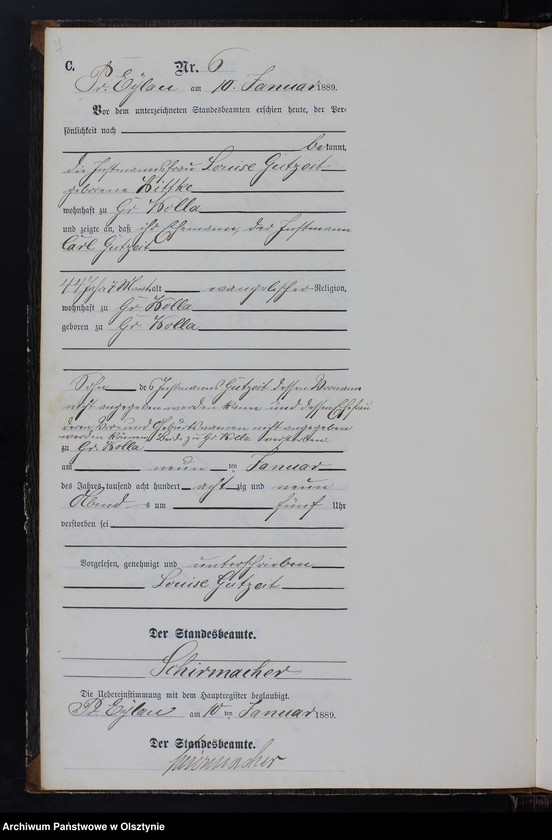 C.
Nr. 6
Pr. Eylau am 10. Januar 1889.
Vor dem unterzeichneten Standesbeamten erschien heute, der Per-
sönlichkeit nach
bekannt,
die Instmannsfrau Louise Gutzeit
geborene
wohnhaft zu Gr Wolla
und zeigte an, daß ihr Ehemann, der Instmann
Carl Gutzeit
44 Jahr 7 Monat alt evangelischer Religion,
wohnhaft zu Gr Wolla
geboren zu Gr Wolla
Sohn des Instmanns Gutzeit dessen Vorname
nicht angegeben werden kann und dessen Ehefrau
deren Vor und Geburtsnamen nicht angegeben
werden können Beide zu Gr. Wolla verstorben.
zu Gr. Wolla
am neun ten Januar
des Jahres tausend acht hundert acht zig und neun
Abend s um fünf Uhr
verstorben sei
Vorgelesen, genehmigt und unterschrieben
Louise Gutzeit
Der Standesbeamte.
Schirmacher
Die Uebereinstimmung mit dem Hauptregister beglaubigt.
Pr. Eylau am 10 ten Januar 1889.
Der Standesbeamte.
Schirmacher
Archiwum Państwowe w Olsztynie